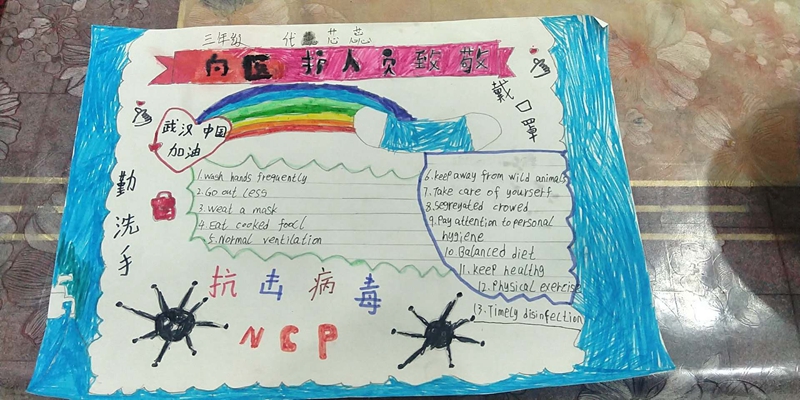 三年级 代 芯蕊
向医护人员致敬
戴口罩
武汉 中国
加油
勤洗手
1. wash hands frequently
2. Go out less
3. weat a mask
4. Eat cooked food
5. Normal ventilation
6. keep away from wild animals
7. Take care of yourself
8. Segreyated crowed
9. Pay attention to personal
hygiene
10. Balanced diet
11. keep healthy
12. Physical exercise
13. Timely disinfection
抗击病毒
NCP